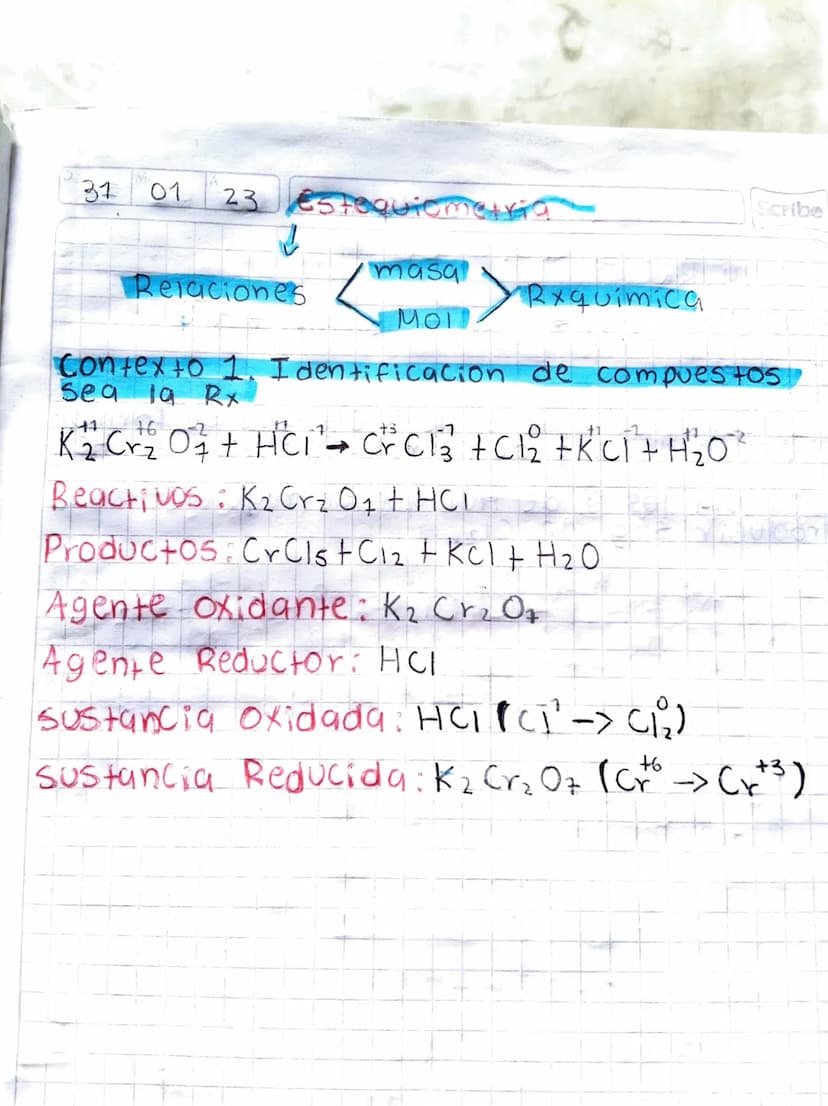 31 01 23 Estequiometria
Scribe
Relaciones masa Mol Rxquímica
Contexto 1. Identificacion de compuestos
sea la Rx
K₂⁺¹Cr₂⁺⁶O₇⁻² + H⁺¹Cl⁻¹ → Cr⁺³Cl₃⁻¹ + Cl₂⁰ + K⁺¹Cl⁻¹ + H₂⁺¹O⁻²
Reactivos: K₂Cr₂O₇ + HCl
Productos: CrCl₅ + Cl₂ + KCl + H₂O
Agente oxidante: K₂Cr₂O₇
Agente Reductor: HCl
sustancia oxidada: HCl (Cl⁻¹ -> Cl₂⁰)
sustancia Reducida: K₂Cr₂O₇ (Cr⁺⁶ -> Cr⁺³)